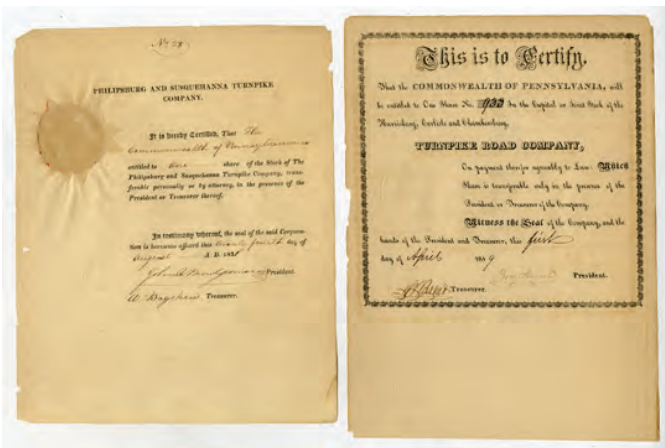 PHILIPSBURG AND SUSQUEHANNA TURNPIKE
COMPANY.
It is hereby Certified, That The
Commonwealth of Pennsylvania
entitled to One share of the Stock of The
Philipsburg and Susquehanna Turnpike Company, trans-
ferable personally or by attorney, in the presence of the
President or Treasurer thereof.
In testimony whereof, the seal of the said Corpora-
tion is hereunto affixed this twenty fourth day of
August A. D. 182
President.
Treasurer.
This is to Certify,
That the COMMONWEALTH OF PENNSYLVANIA, will
be entitled to One Share No. 933 In the Capital or Joint Stock of the
Harrisburg, Carlisle and Chambersburg,
TURNPIKE ROAD COMPANY,
On payment therefor agreeably to Law: Which
Share is transferable only in the presence of the
President or Treasurer of the Company.
Witness the Seal of the Company, and the
hands of the President and Treasurer, this first
day of April 9
President.
Treasurer.